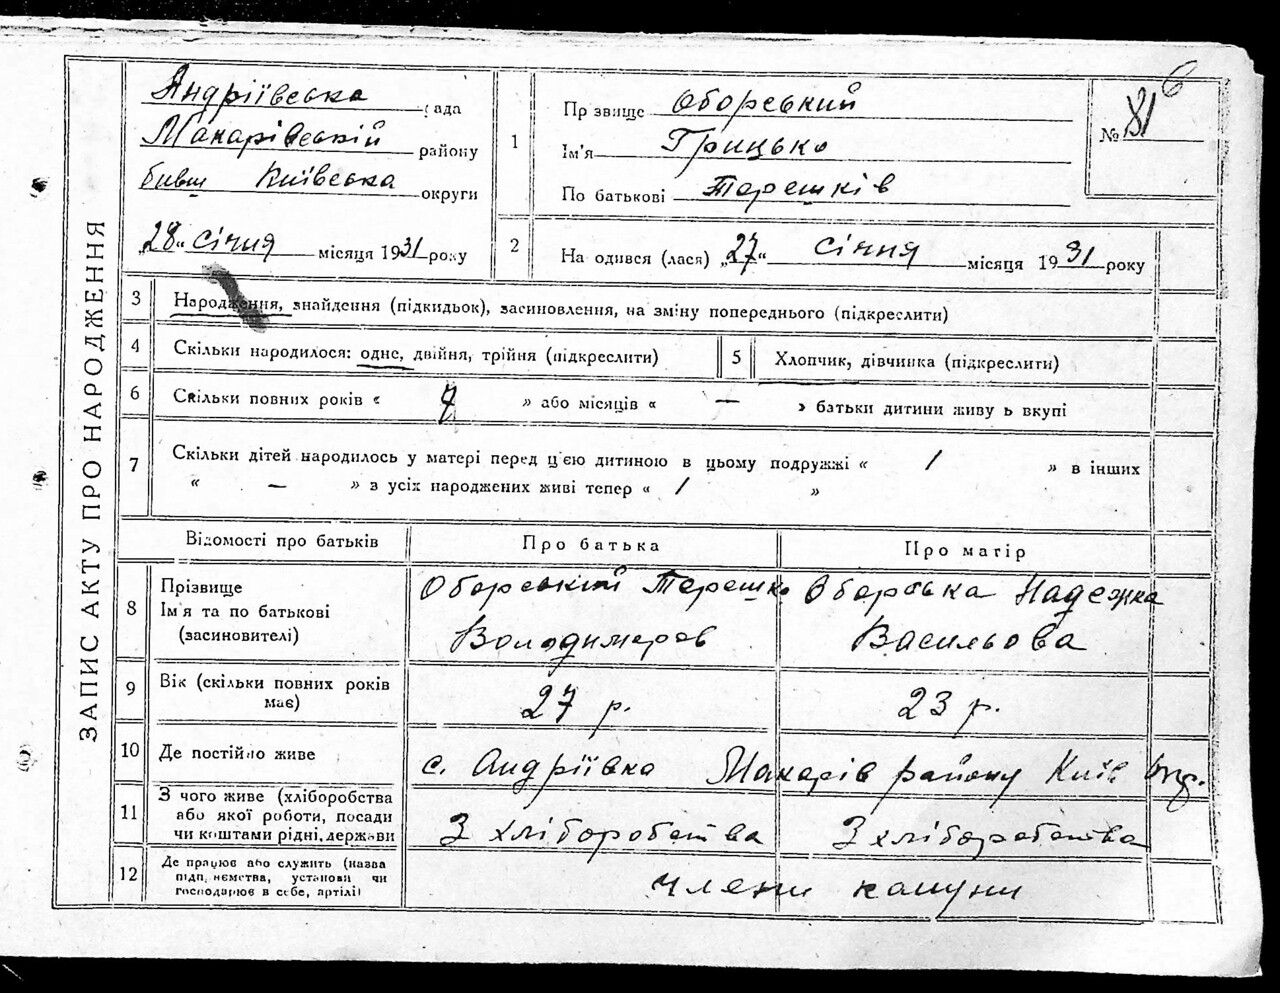 6
ЗАПИС АКТУ ПРО НАРОДЖЕННЯ
Андріївська рада
Макарівській району
бивш Київська округи
„28" січня місяця 1931 року
1
Прізвище Оборський
Ім'я Грицько
По батькові Терешків
№ 81
2
На одився (лася) „27" січня місяця 1931 року
3 Народження, знайдення (підкидьок), засиновлення, на зміну попереднього (підкреслити)
4 Скільки народилося: одне, двійня, трійня (підкреслити)
5 Хлопчик, дівчинка (підкреслити)
6 Скільки повних років « 7 » або місяців « — » батьки дитини живуть вкупі
7 Скільки дітей народилось у матері перед цією дитиною в цьому подружжі « 1 » в інших
« — » з усіх народжених живі тепер « 1 »
Відомості про батьків Про батька Про матір
8 Прізвище
Ім'я та по батькові
(засиновителі)
Оборський Терешко
Володимеров
Оборська Надежка
Васильова
9 Вік (скільки повних років
має)
27 р. 23 р.
10 Де постійно живе с. Андріївка Макарів району Київ окр.
11 З чого живе (хліборобства
або якої роботи, посади
чи коштами рідні, держави
З хліборобства З хліборобства
12 Де працює або служить (назва
підп, иємства, установи чи
господарює в себе, артілі)
члени комуни